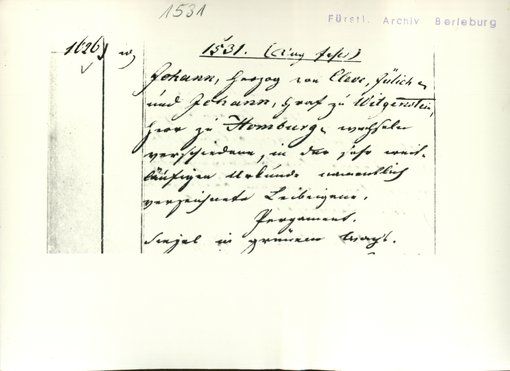 1531
Fürstl. Archiv Berleburg
1626)
1531.
Johann, Herzog von Cleve, Jülich
und Johann, Graf zu Witgenstein,
Herr zu Homburg, wechseln
verschiedene, in der sehr weit-
läufigen Urkunde namentlich
verzeichnete Leibeigene.
Pergament.
Siegel in grünem Wachs.